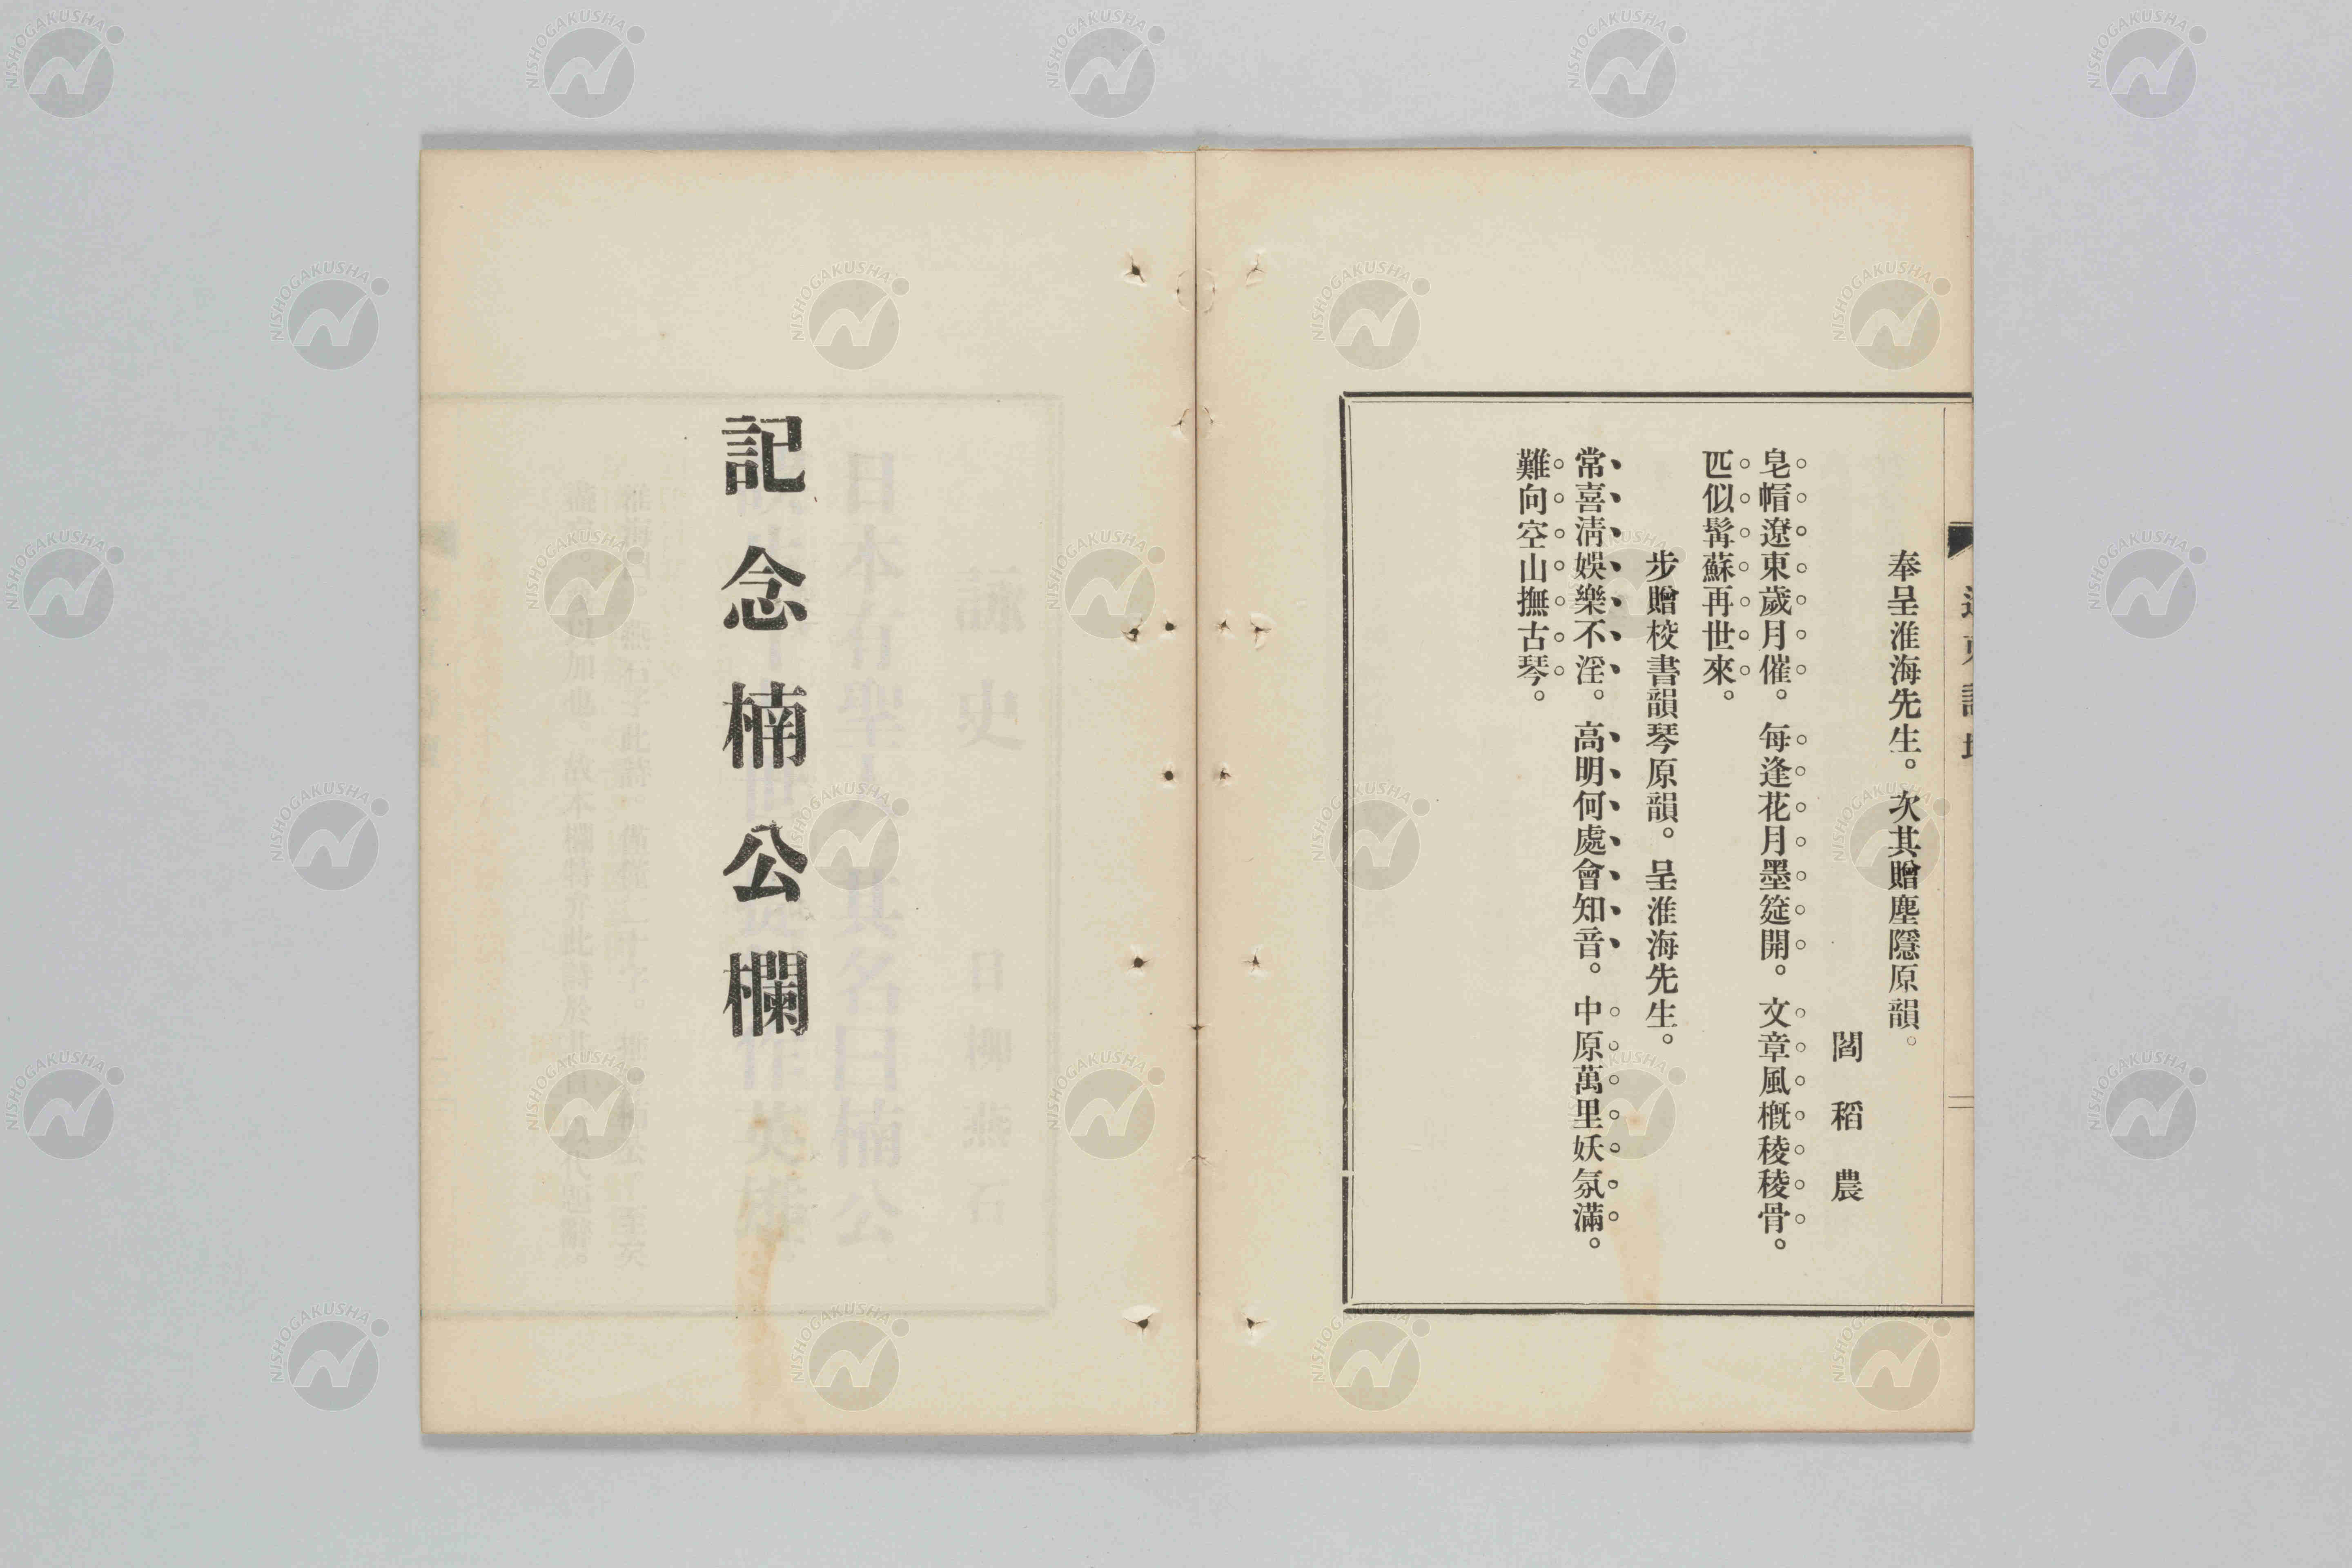 奉呈淮海先生。次其贈塵隱原韻。
閻稻農
皂帽遼東歲月催。每逢花月墨筵開。文章風概稜稜骨。
匹似髯蘇再世來。
步贈校書韻琴原韻。呈淮海先生。
常喜淸娛樂不淫。高明何處會知音。中原萬里妖氛滿。
難向空山撫古琴。
記念楠公欄
詠史
日柳燕石
日本有聖人其名曰楠公
NISHOGAKUSHA